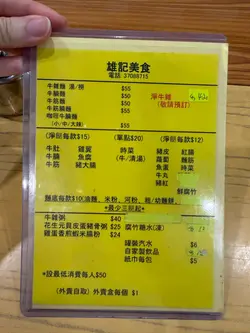 雄記美食
電話 37088715
牛雜麵 湯/撈 $55
牛腩麵 $50
牛筋麵 $50
牛肚麵 $50
咖喱牛腩麵 $55
(小/中/大辣)
淨牛雜
(敬請預訂)
(淨配每款$15) (單點$20) (淨配每款$12)
牛肚 雞翼 時菜 豬皮 紅腸
牛腩 魚腐 (牛/清湯) 蘿蔔 麵筋
牛筋 豬大腸 魚蛋 時菜
牛丸
豬紅 鮮腐竹
麵底每款$10(油麵、米粉、河粉、粗/幼麵餅)
*最少三餸起*
牛雜粥 $40
花生元貝皮蛋豬骨粥 $25 腐竹糖水(凍)
雞蛋香煎蝦米腸粉 $24
罐裝汽水 $6
自家製飲品
紙巾每包 $5
*設最低消費每人$50
(外賣自取) 外賣盒每個 $1